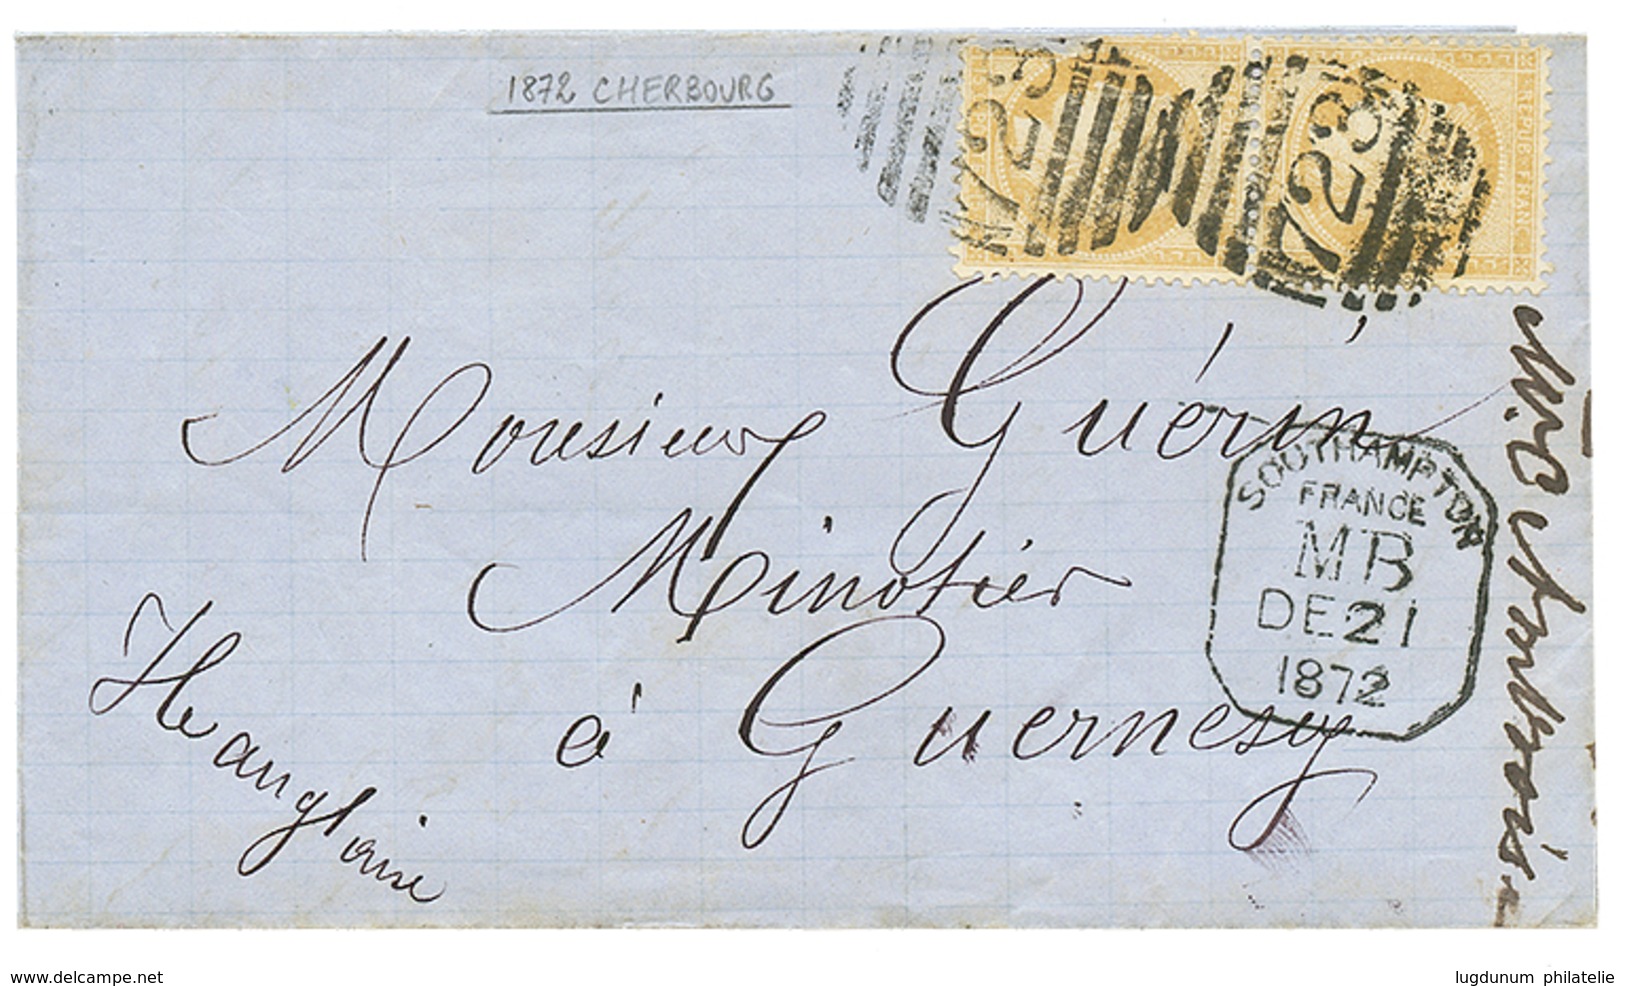 1872 CHERBOURG
723
723
REPUB FRANC
Monsieur Guérin
Minotier
à Guernesy
Ile anglaise
SOUTHAMPTON
FRANCE
MB
DE 21
1872
www.delcampe.net
lugdunum philatelie